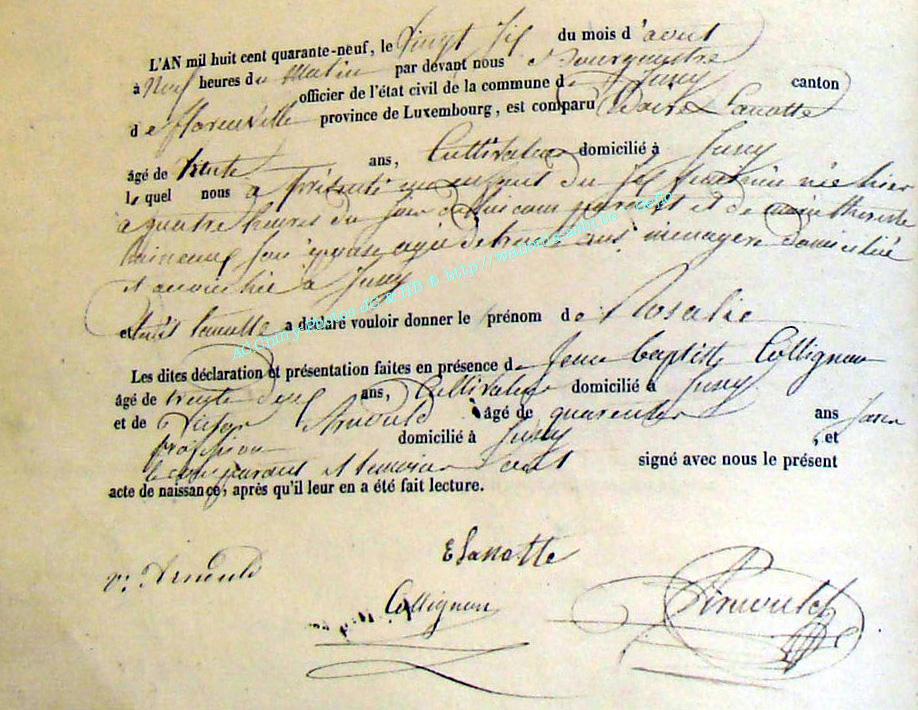 L'AN mil huit cent quarante-neuf, le vingt six du mois d'aout
à neuf heures du matin par devant nous
officier de l'état civil de la commune de canton
de florenville province de Luxembourg, est comparu Lanotte
âgé de trente ans, Cultivateur domicilié à
lequel nous a présenté un enfant du sexe née hier
à quatre heures du soir de lui comparant et de
son épouse agée de trente ans ménagère domiciliée
et à
et Lanotte a déclaré vouloir donner le prénom de Rosalie
Les dites déclaration et présentation faites en présence de Jean Baptiste Collignon
âgé de ans, Cultivateur domicilié à
et de Victor Arnould âgé de quarente ans sans
profession domicilié à , et
le comparant et temoins ont signé avec nous le présent
acte de naissance, après qu'il leur en a été fait lecture.
E Lanotte
v. Arnould
Collignon